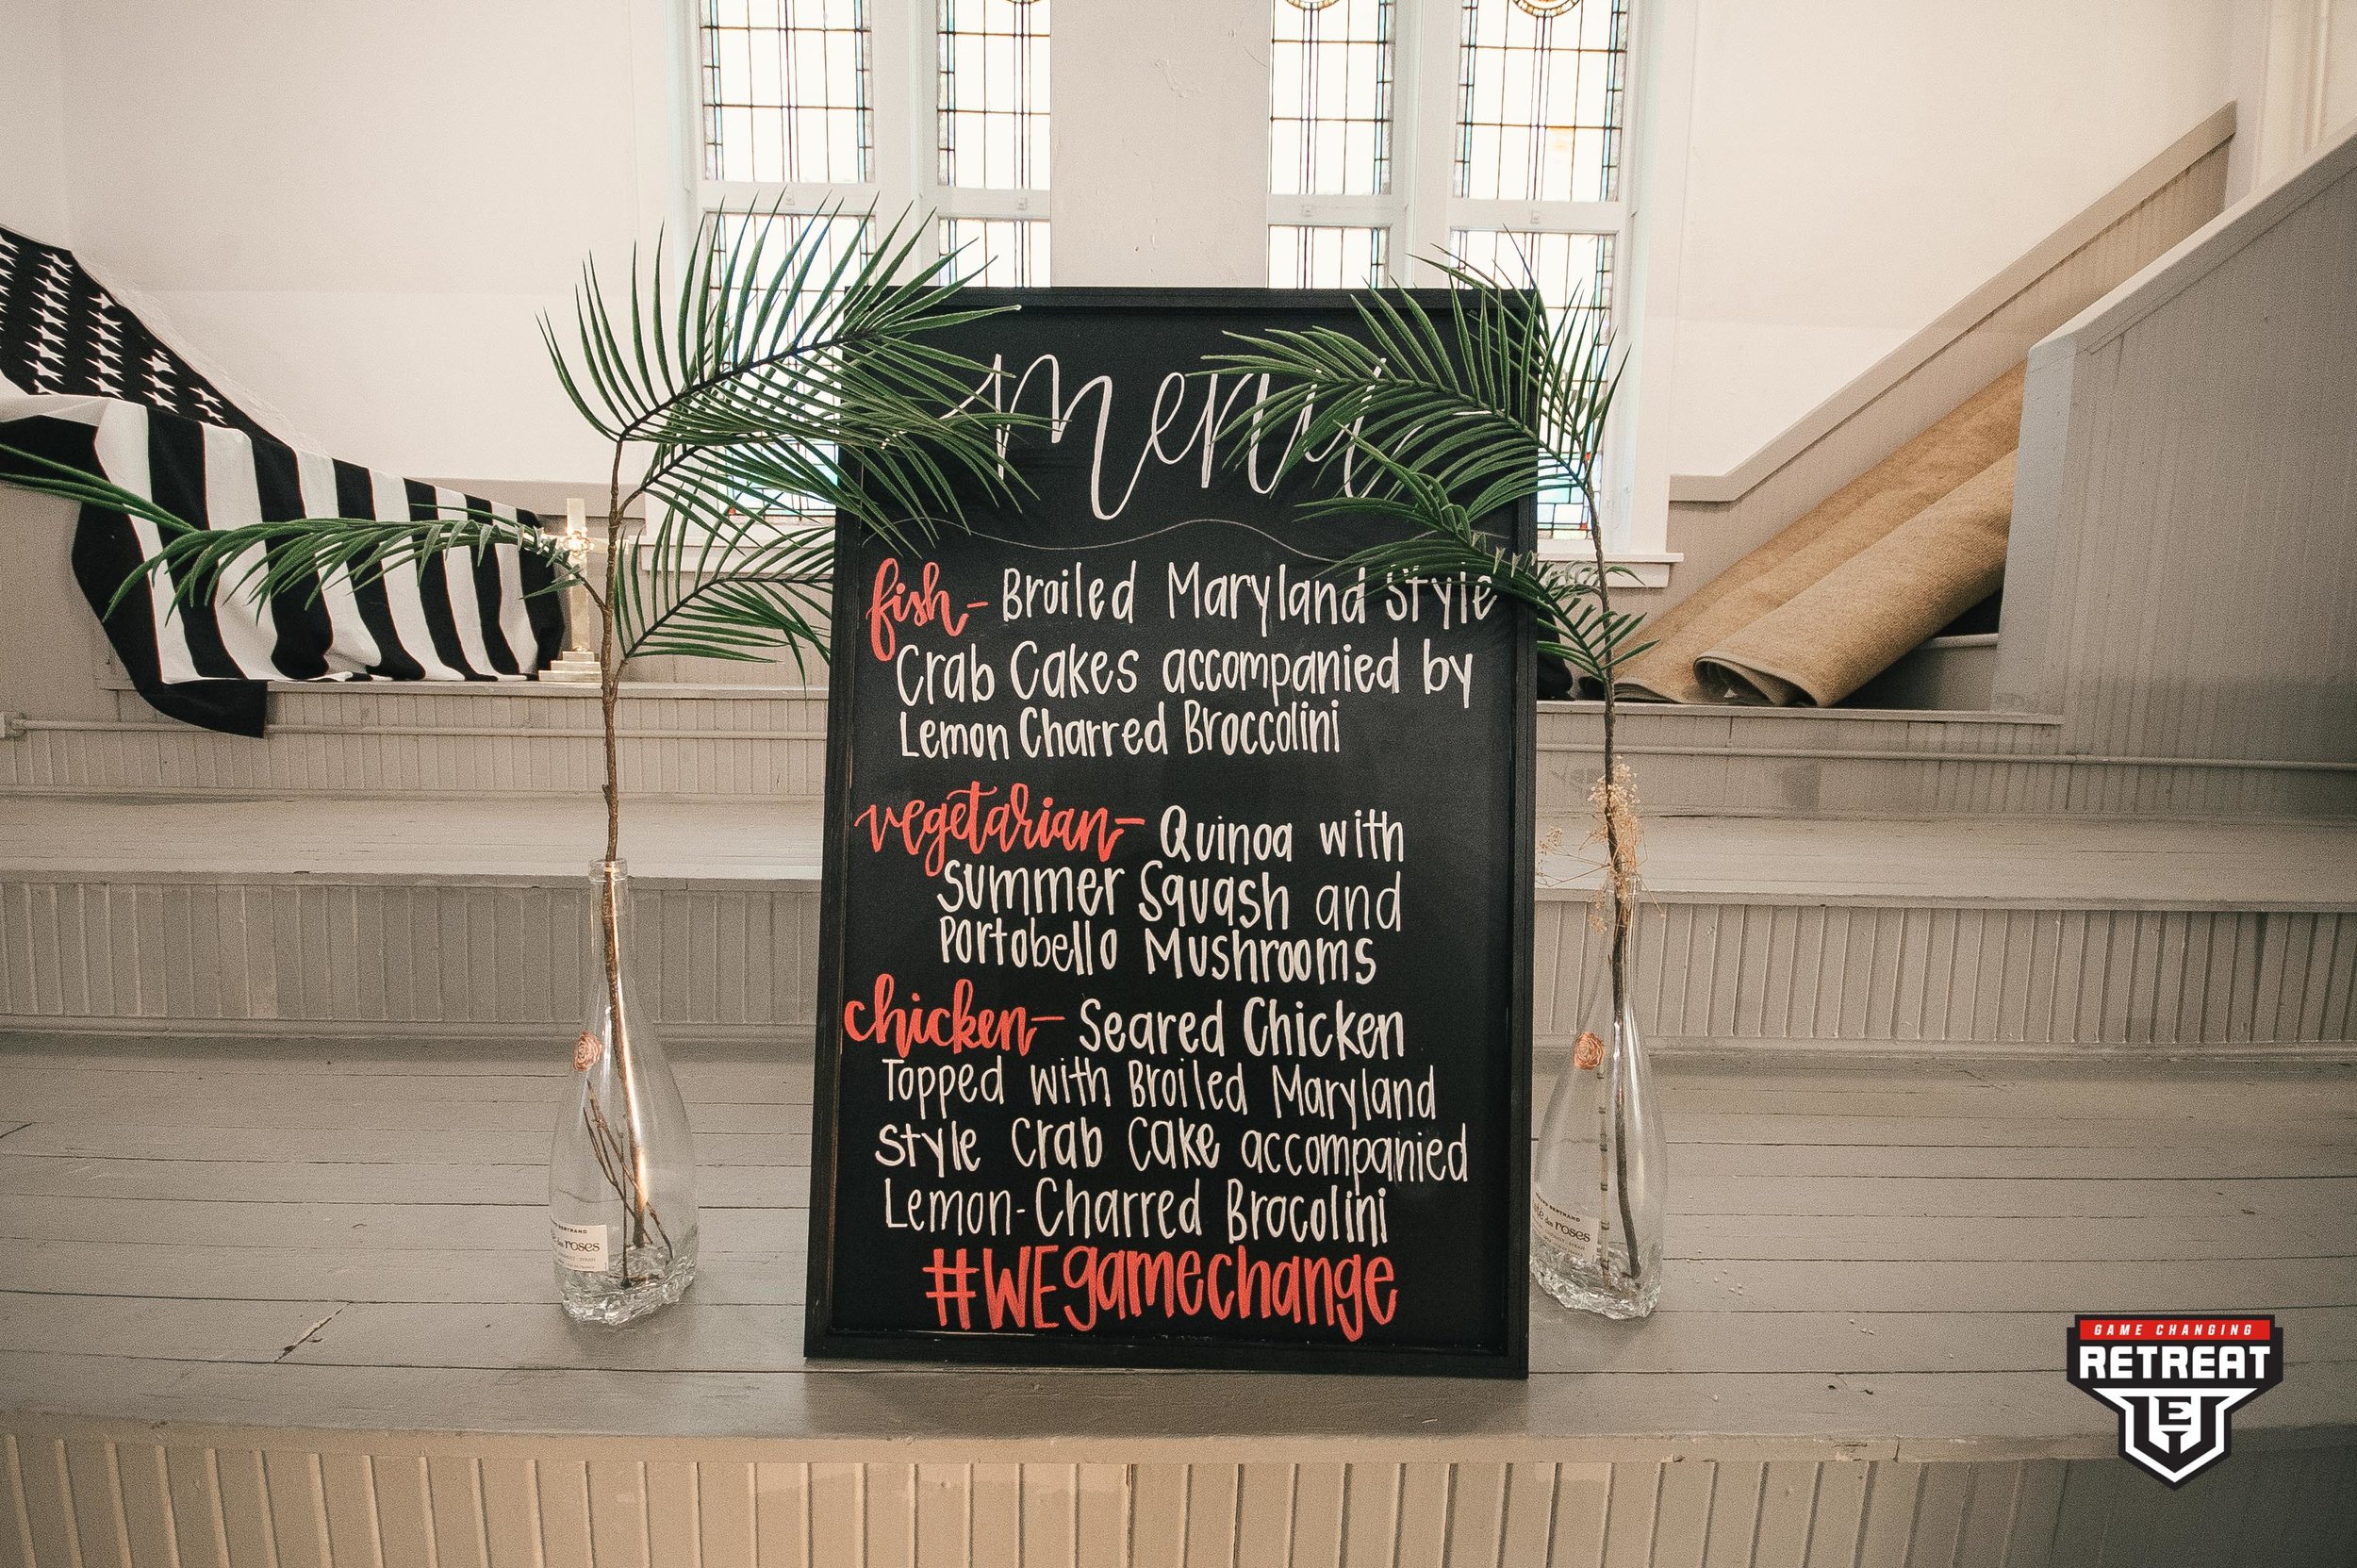 menu
fish- Broiled Maryland Style
Crab Cakes accompanied by
Lemon Charred Broccolini
vegetarian- Quinoa with
Summer Squash and
Portobello Mushrooms
chicken- Seared Chicken
Topped with Broiled Maryland
Style Crab Cake accompanied
Lemon-Charred Brocolini
#WEgamechange
roses
roses
GAME CHANGING
RETREAT